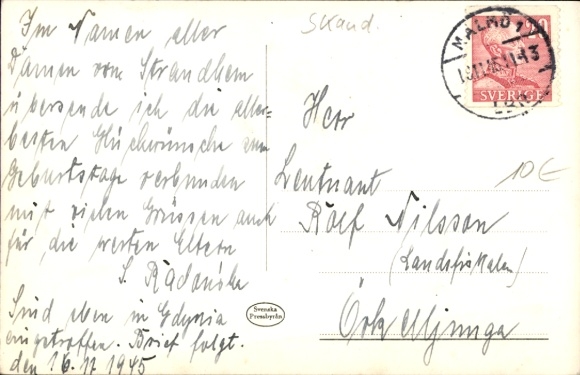 Im Namen aller
Damen vom Strandhem
übersende ich die aller-
besten Glückwünsche zum
Geburtstage verbunden
mit vielen Grüssen auch
für die werten Eltern
Sind eben in Gdynia
eingetroffen. Brief folgt.
den 16.11 1945
Skand.
MALMÖ 1
SVERIGE
10€
Herr
Leutnant
Rolf Nilsson
(Landsfiskalen)
Örkelljunga
Svenska
Pressbyrån